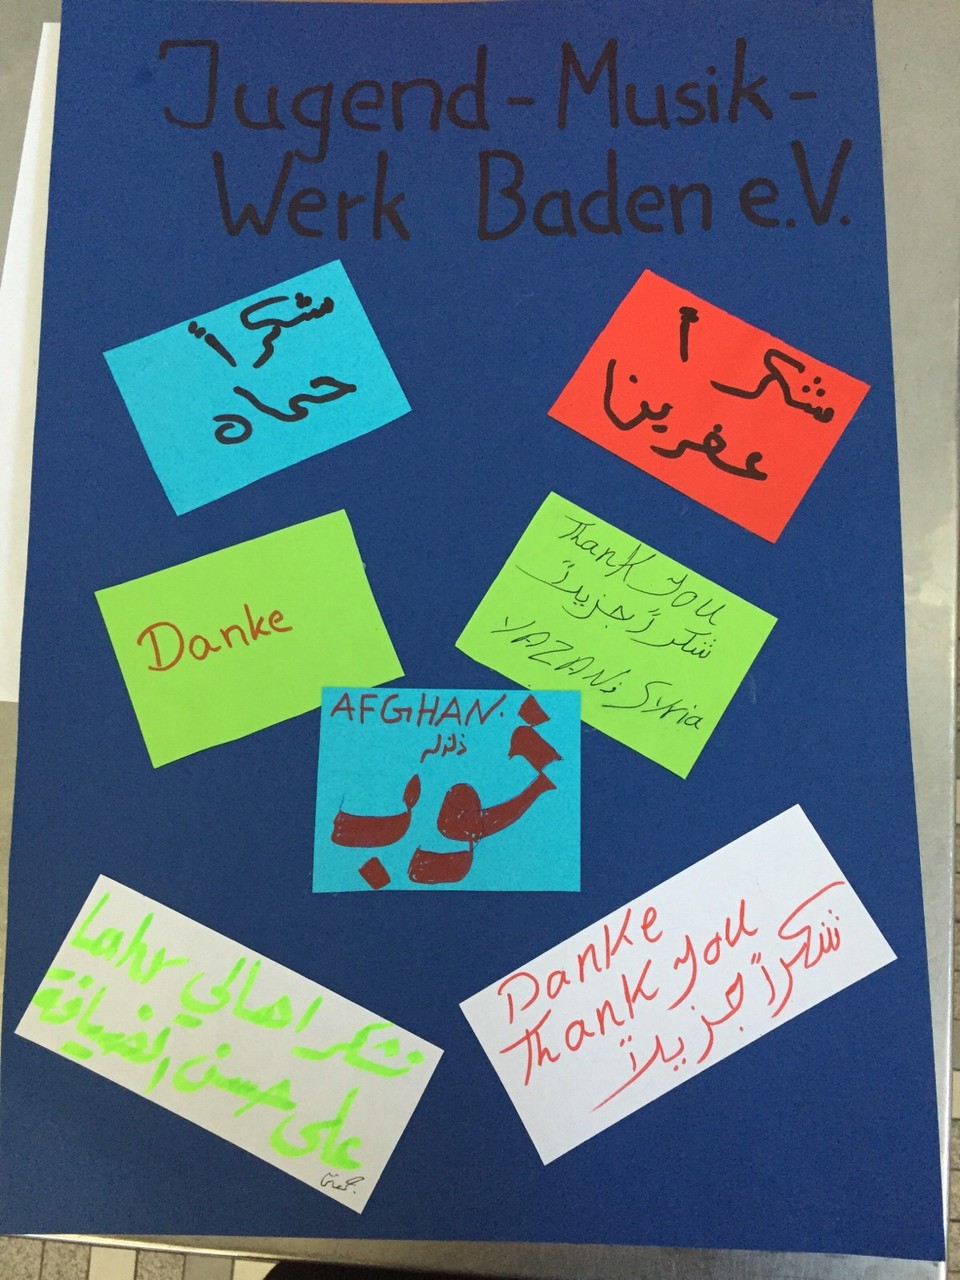 Jugend-Musik-
Werk Baden e.V.
شكراً
حماه
شكراً
عفرينا
Danke
Thank You
شكراً جزيلاً
YAZAN; Syria
AFGHAN.
خوب
نشكر اهالي Lahr
على حسن الضيافة
Danke
Thank You
شكراً جزيلاً